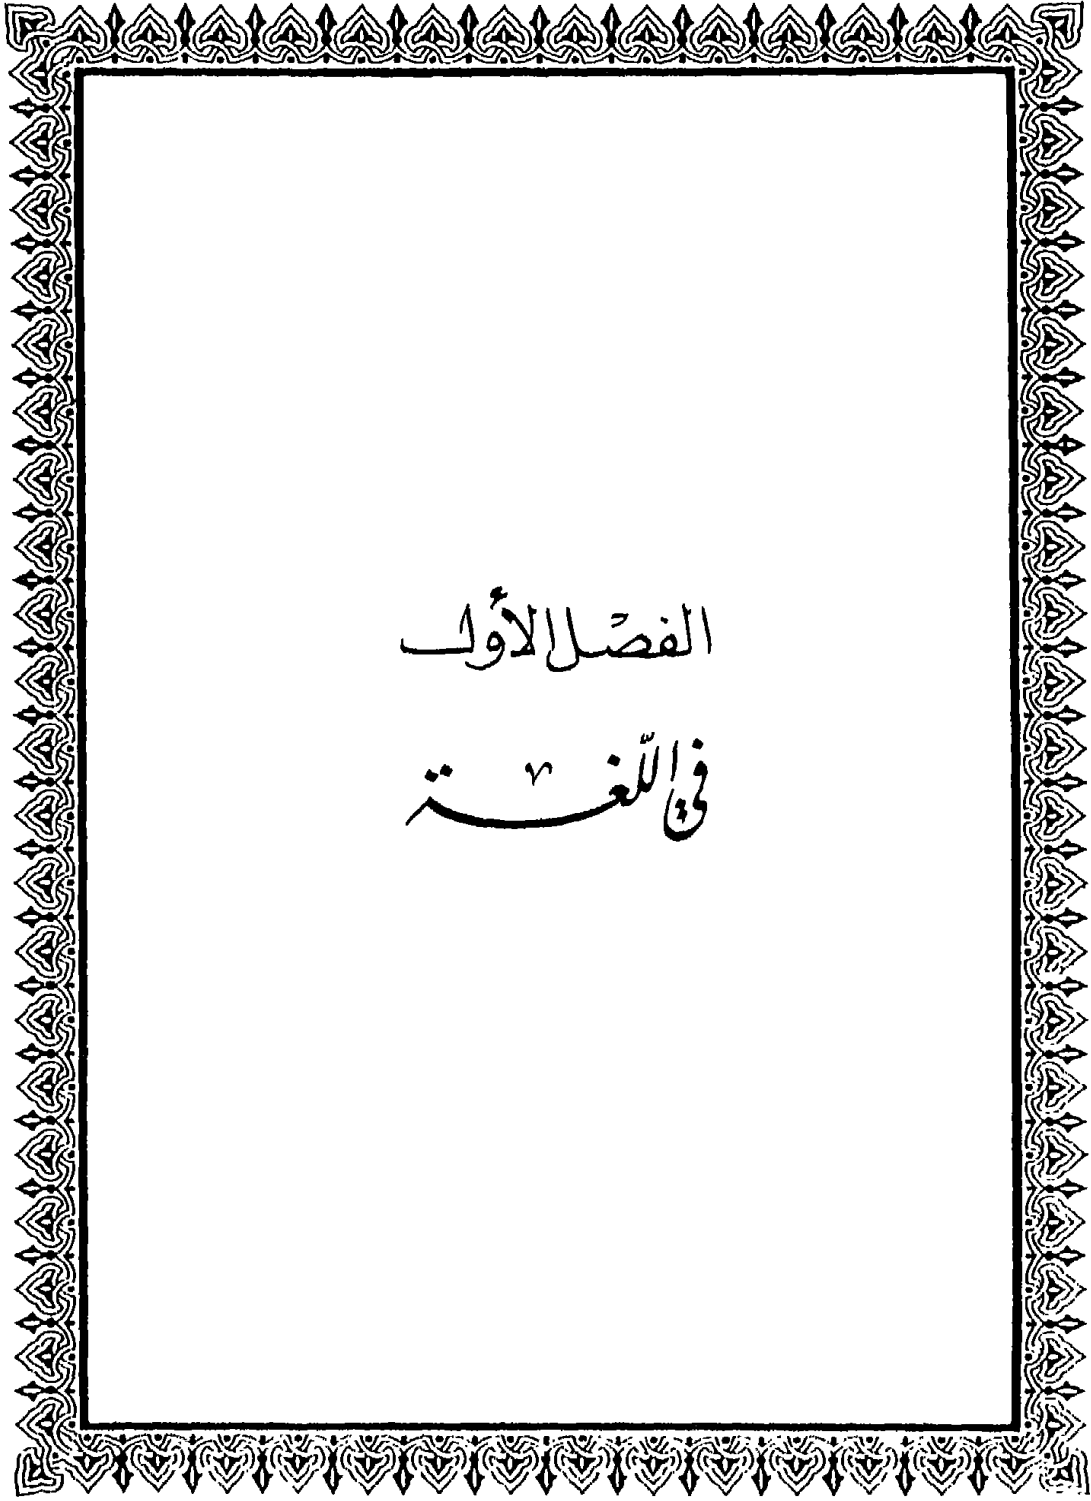 الفصل الأول
في اللّغة